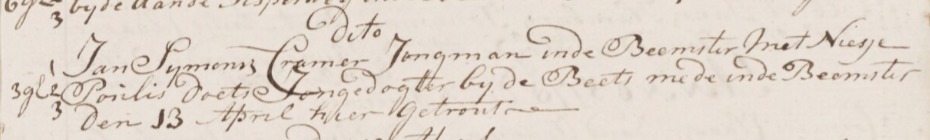 3 by de
dito
Jan Symonsz Cramer Jongman inde Beemster Met Niesje
3 gl Poulis Doets Jongedogter by de Beets mede inde Beemster
3 Den 13 April hier Getrout